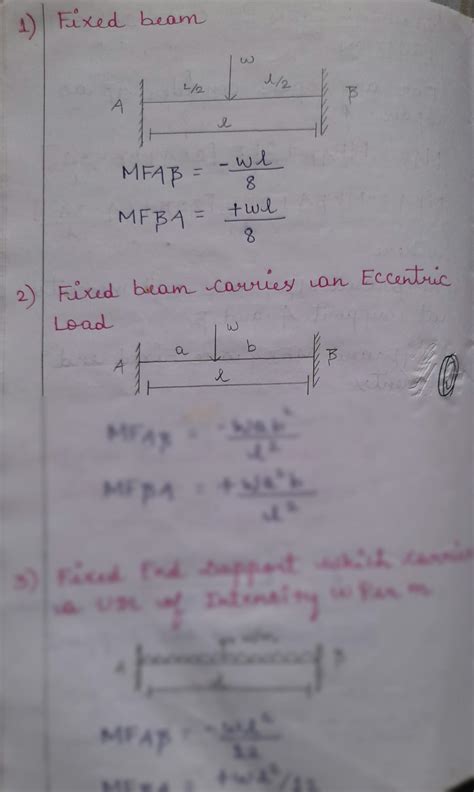 1) Fixed beam
w
L/2 l/2
A B
l
MFAB = -wl/8
MFBA = +wl/8
2) Fixed beam carries an Eccentric
Load
w
a b
A B
l
MFAB = -wab²/l²
MFBA = +wa²b/l²
3) Fixed End Support which carries
a UDL of Intensity w Per m
A B
l
MFAB = -wl²/12
MFBA = +wl²/12